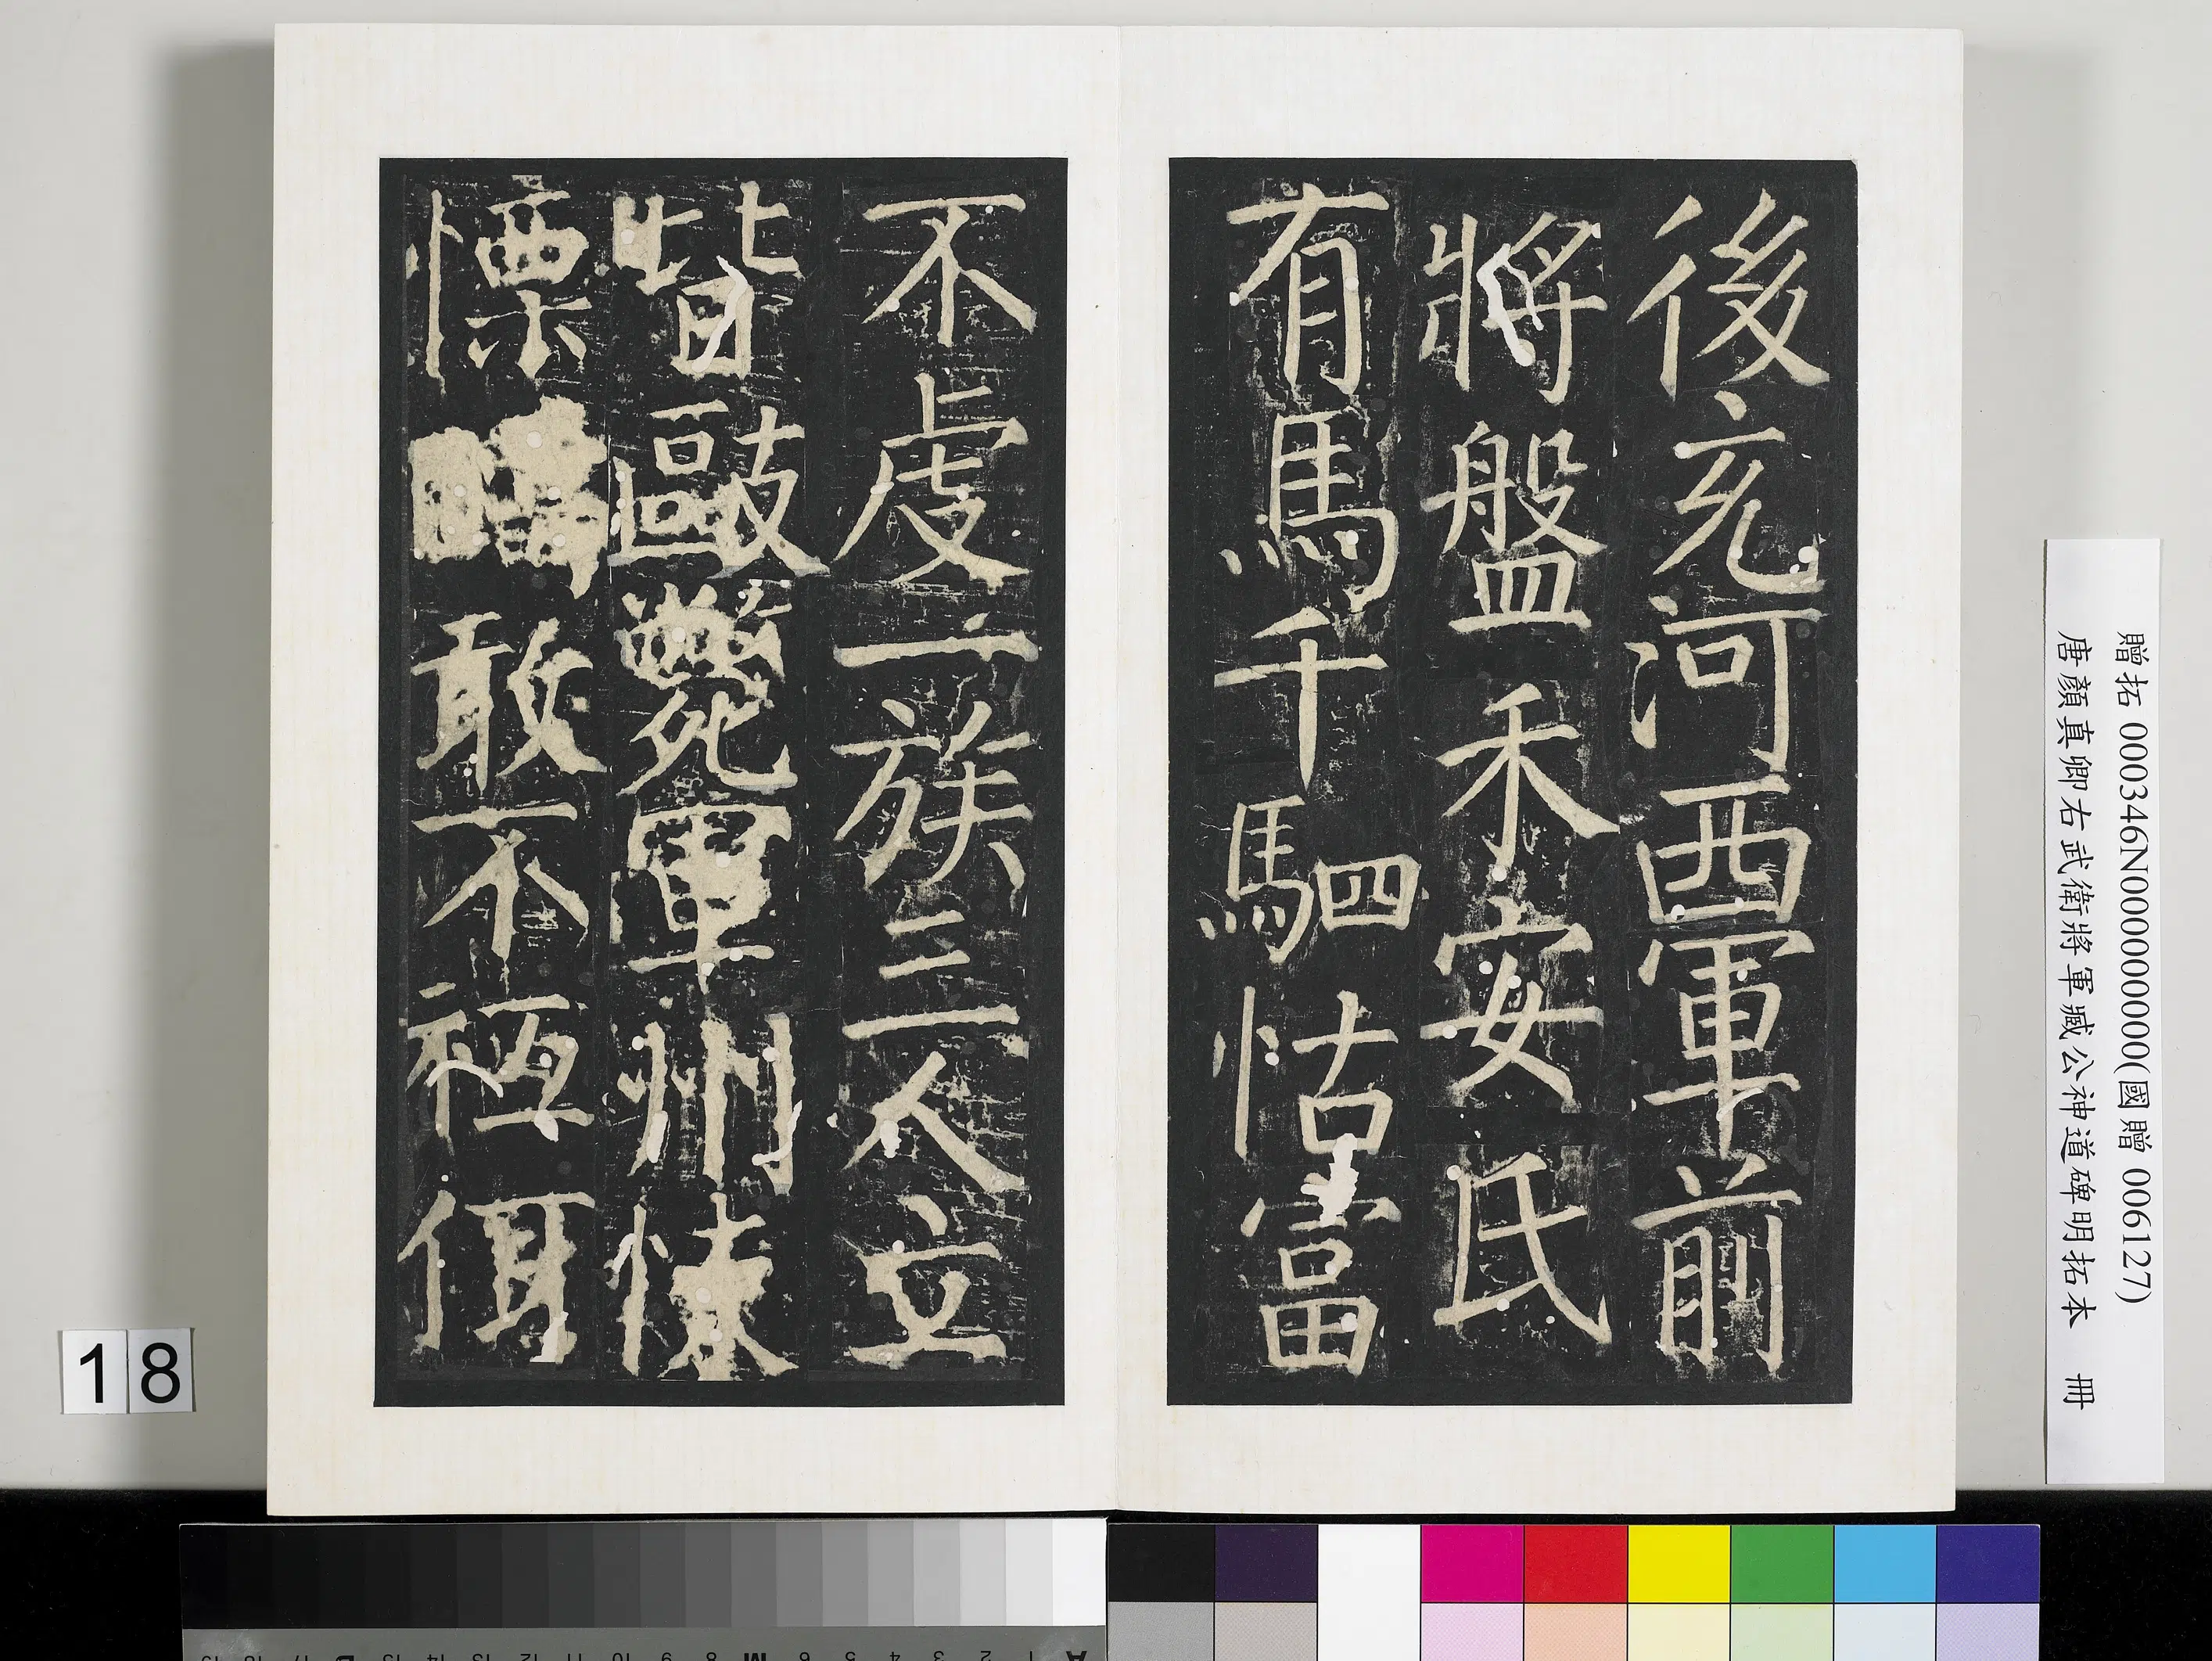 後充河西軍前
將盤禾安氏
有馬千駟怙富
不虔一族三人立
皆毆斃軍州悚
慄 敢不祗
贈拓 000346N000000000(國贈 006127)
唐顏真卿右武衛將軍臧公神道碑明拓本 冊
18